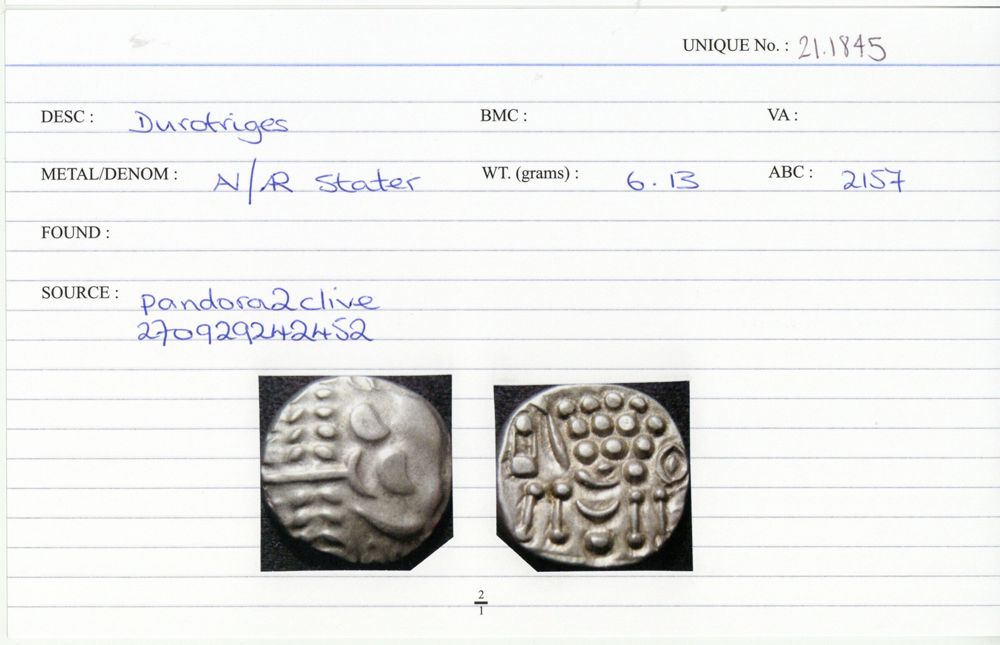 UNIQUE No. : 21.1845
DESC : Durotriges BMC : VA :
METAL/DENOM : AV/AR Stater WT. (grams) : 6.13 ABC : 2157
FOUND :
SOURCE : pandora2clive
270929242452
2
1